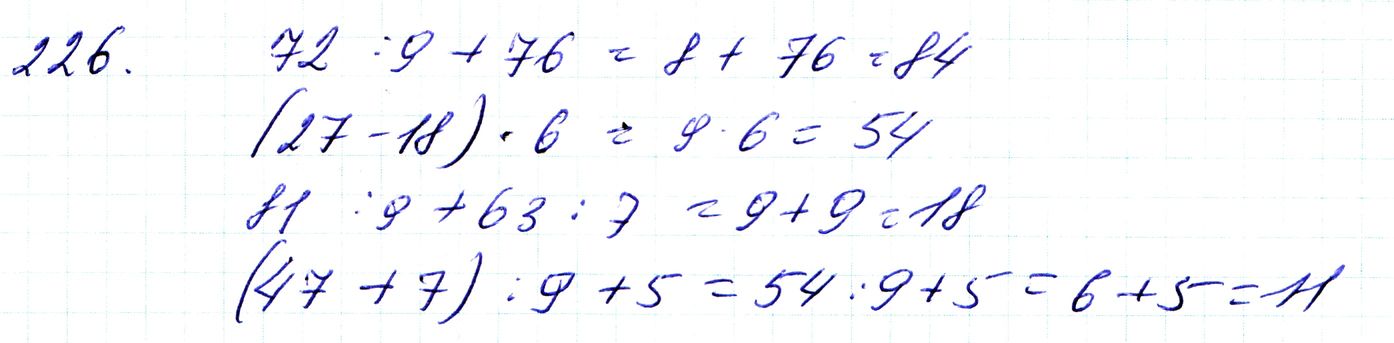 226. 72 : 9 + 76 = 8 + 76 = 84
(27 - 18) · 6 = 9 · 6 = 54
81 : 9 + 63 : 7 = 9 + 9 = 18
(47 + 7) : 9 + 5 = 54 : 9 + 5 = 6 + 5 = 11